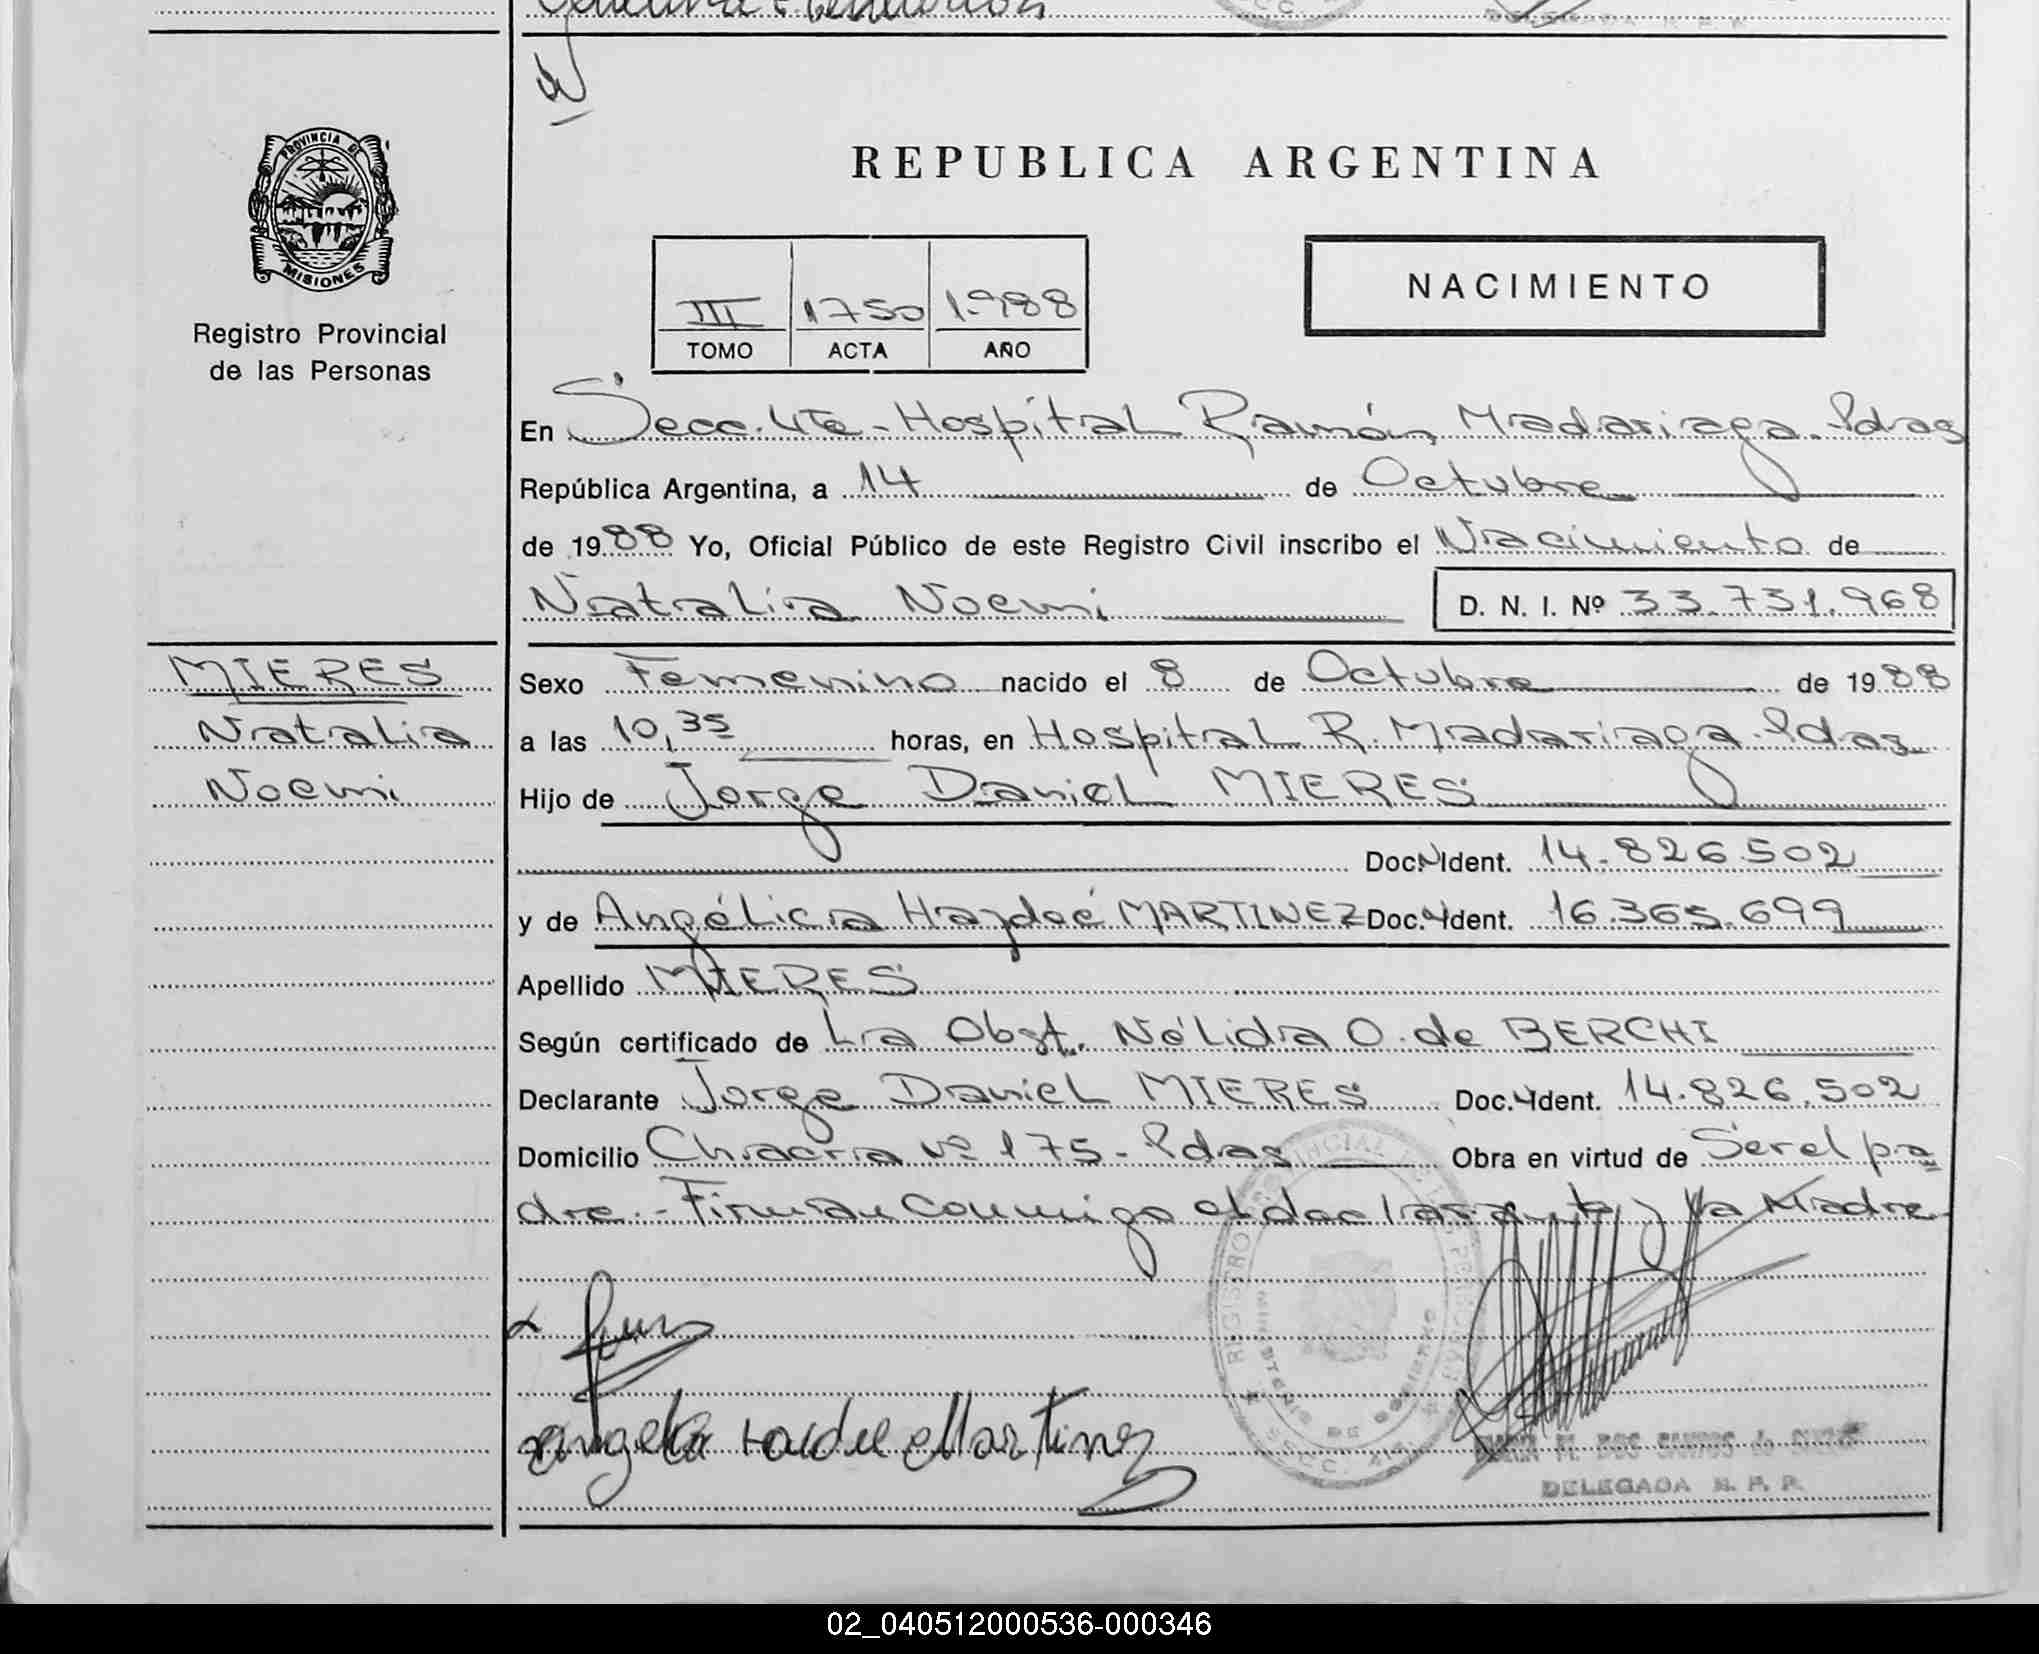 PROVINCIA DE
MISIONES
Registro Provincial
de las Personas
REPUBLICA ARGENTINA
NACIMIENTO
III 1750 1.988
TOMO ACTA AÑO
En Secc. 4ta - Hospital Ramón Madariaga. Pdas
República Argentina, a 14 de Octubre
de 1988 Yo, Oficial Público de este Registro Civil inscribo el Nacimiento de
Natalia Noemi D. N. I. Nº 33.731.968
MIERES
Natalia
Noemi
Sexo Femenino nacido el 8 de Octubre de 1988
a las 10,35 horas, en Hospital R. Madariaga. Pdas
Hijo de Jorge Daniel MIERES
Doc. Ident. 14.826.502
y de Angélica Haydeé MARTINEZ Doc. Ident. 16.365.699
Apellido MIERES
Según certificado de La Obst. Nélida O. de BERCHI
Declarante Jorge Daniel MIERES Doc. Ident. 14.826.502
Domicilio Chacra Nº 175 - Pdas Obra en virtud de Ser el pa
dre. - Firman conmigo el declarante y la Madre
REGISTRO PROVINCIAL DE LAS PERSONAS
MINISTERIO DE GOBIERNO
Martinez
DELEGADA R. P. P.
02_040512000536-000346